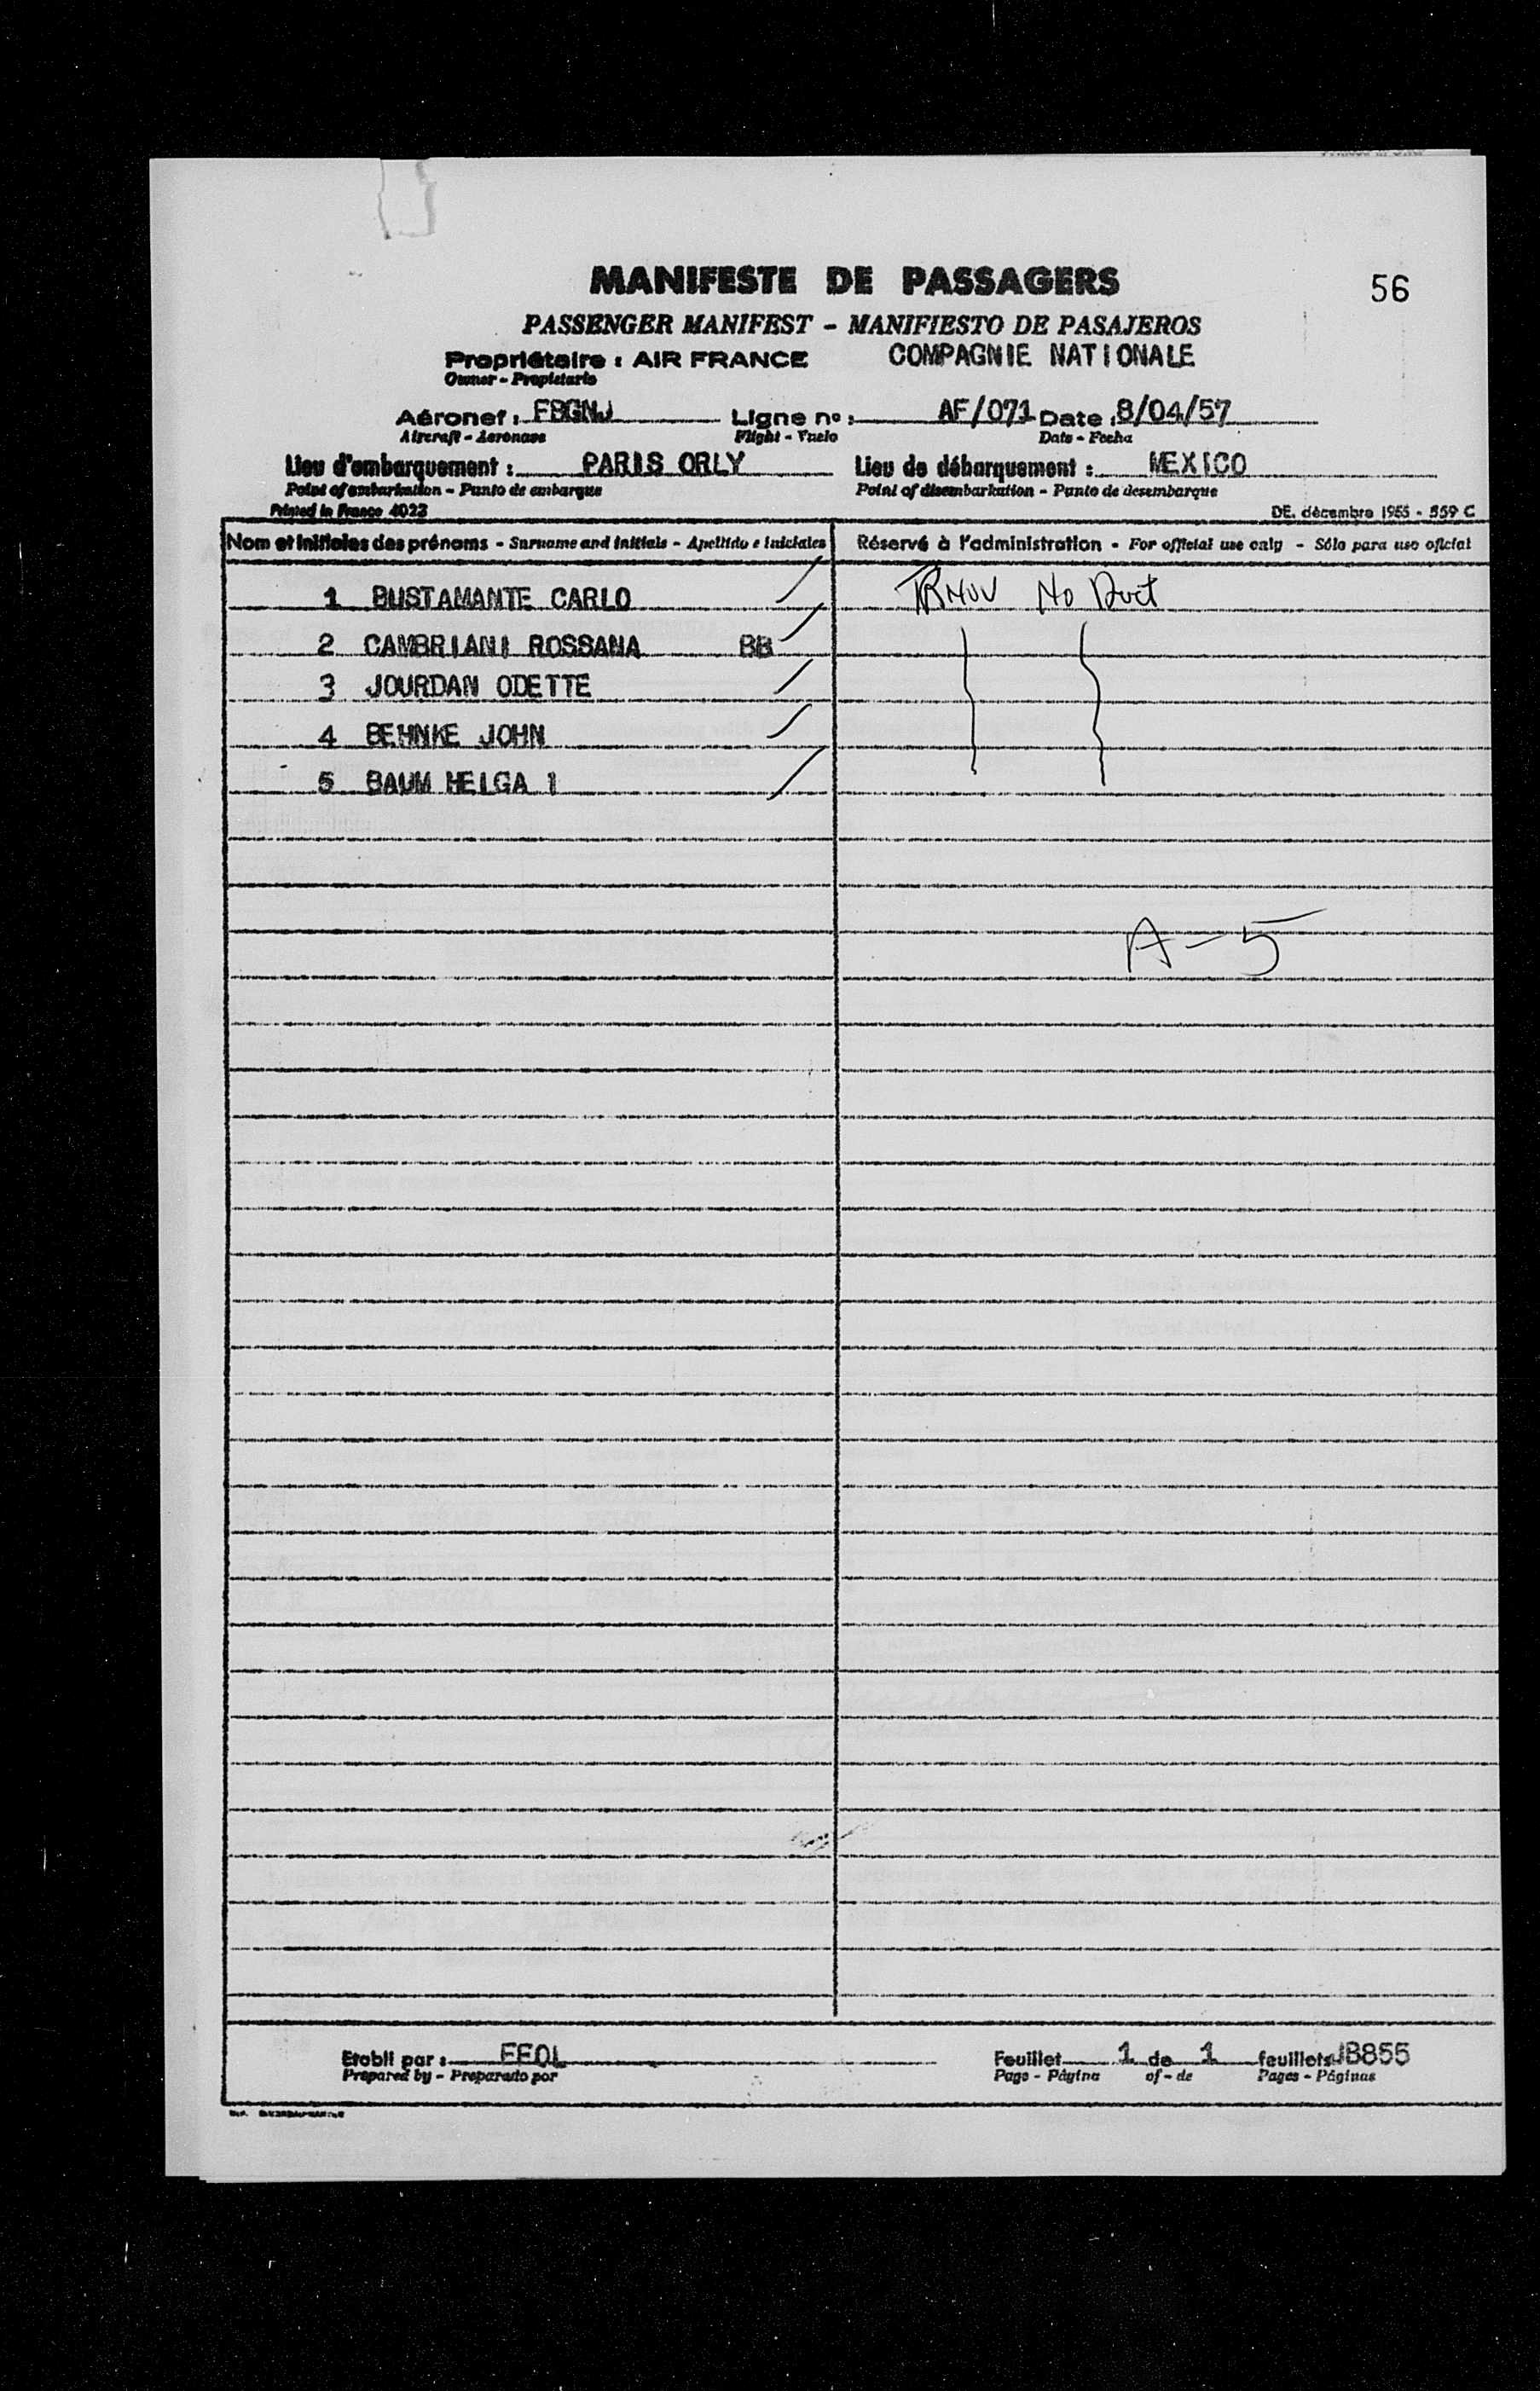 MANIFESTE DE PASSAGERS
56
PASSENGER MANIFEST - MANIFIESTO DE PASAJEROS
Propriétaire : AIR FRANCE COMPAGNIE NATIONALE
Owner - Propietario
Aéronef : FBGNJ Ligne nº : AF/071 Date : 8/04/57
Aircraft - Aeronave Flight - Vuelo Date - Fecha
Lieu d'embarquement : PARIS ORLY Lieu de débarquement : MEXICO
Point of embarkation - Punto de embarque Point of disembarkation - Punto de desembarque
Printed in France 4023 DE. décembre 1955 - 559 C
Nom et initiales des prénoms - Surname and initials - Apellido e iniciales Réservé à l'administration - For official use only - Sólo para uso oficial
1 BUSTAMANTE CARLO No
2 CAMBRIANI ROSSANA BB
3 JOURDAN ODETTE
4 BEHNKE JOHN
5 BAUM HELGA 1
A-5
Etabli par : EEOL Feuillet 1 de 1 feuillets JB855
Prepared by - Preparado por Page - Página of - de Pages - Páginas